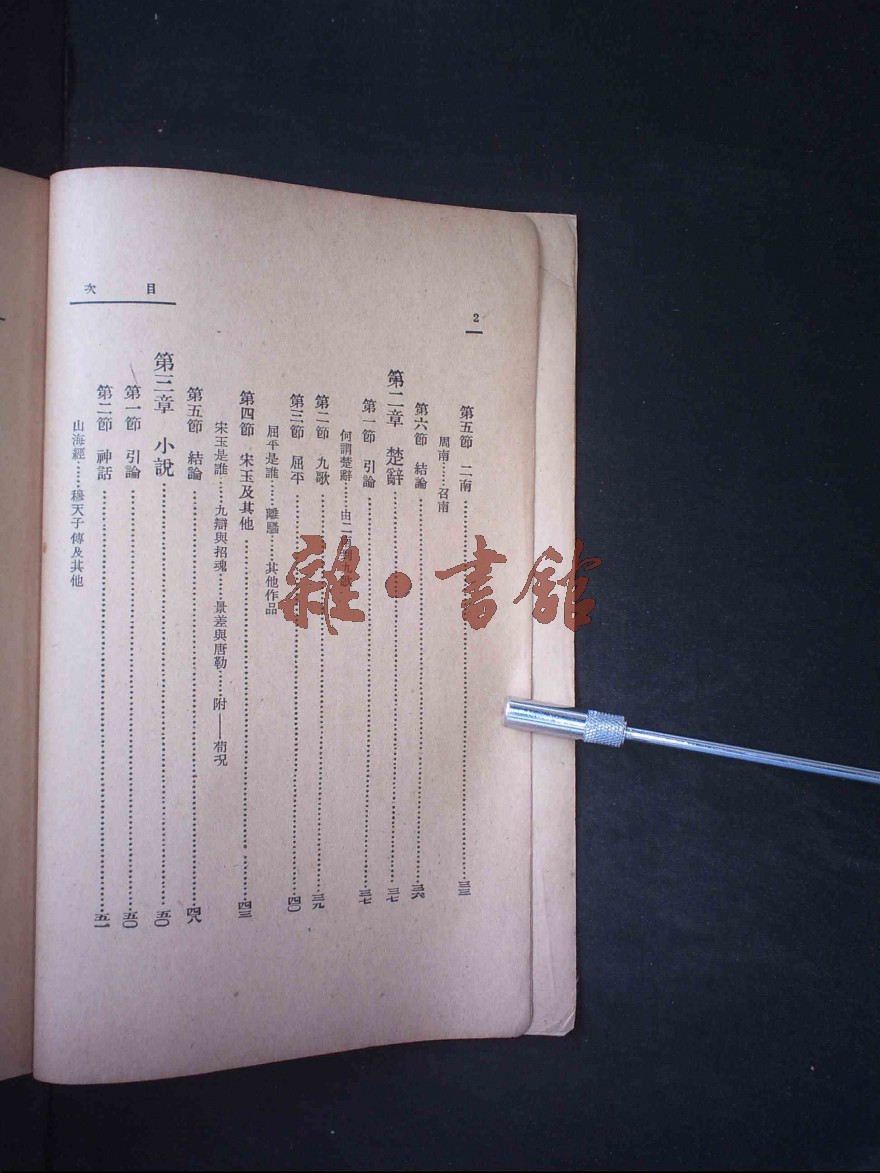 目次
2
第五節 二南……三三
周南……召南
第六節 結論……三六
第二章 楚辭……三七
第一節 引論……三七
何謂楚辭……由二南到九歌
第二節 九歌……三九
第三節 屈平……四〇
屈平是誰……離騷……其他作品
第四節 宋玉及其他……四三
宋玉是誰……九辯與招魂……景差與唐勒……附——荀況
第五節 結論……四八
第三章 小說……五〇
第一節 引論……五〇
第二節 神話……五一
山海經……穆天子傳及其他
雜·書館